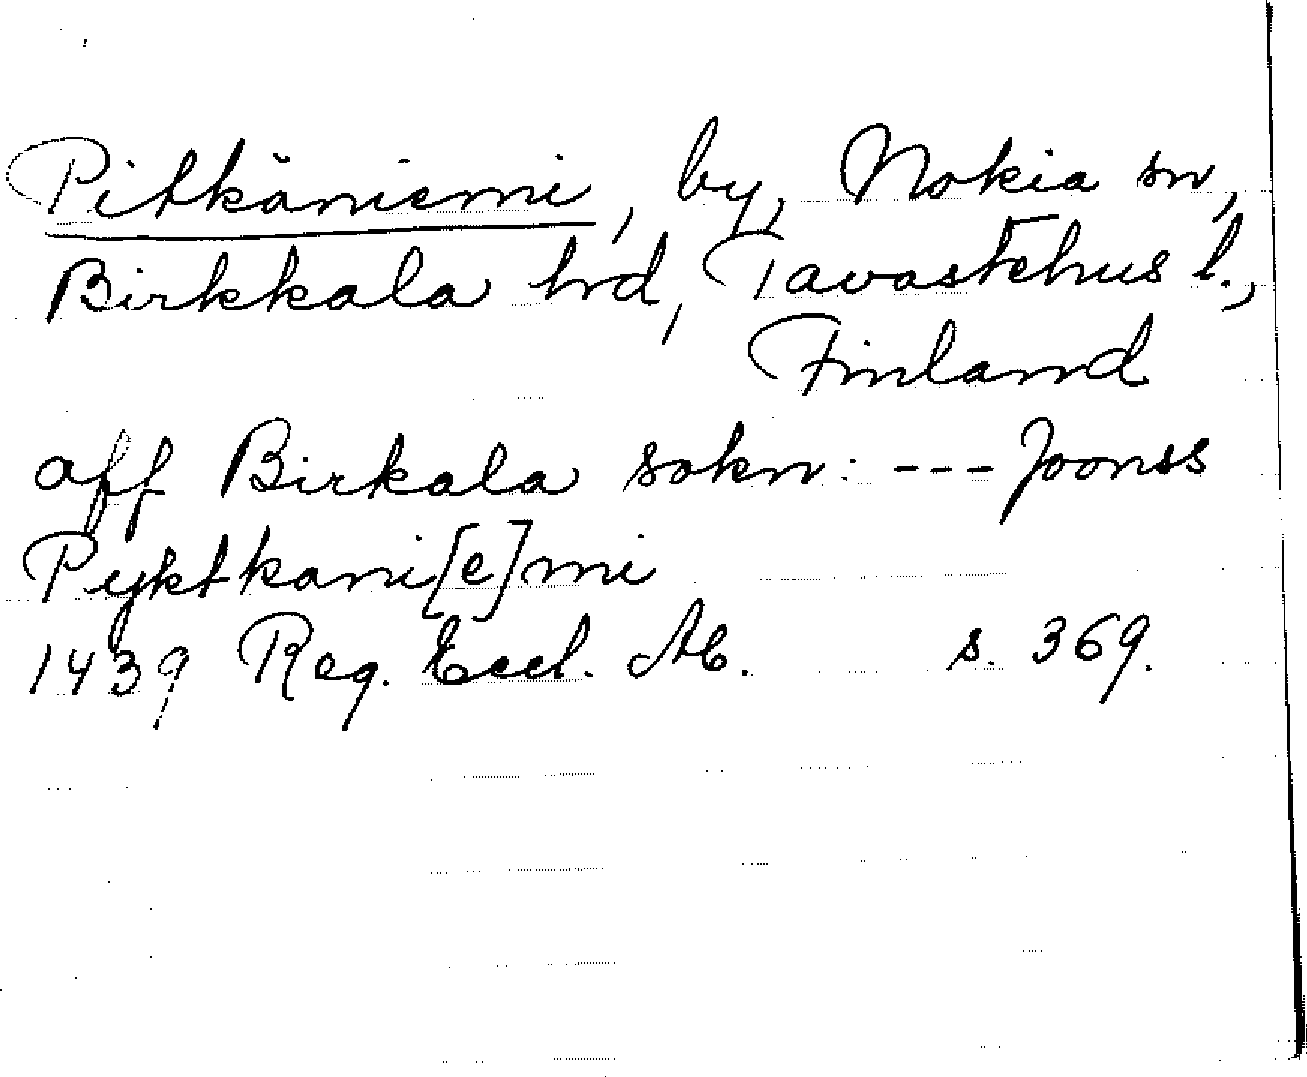 Pitkäniemi, by, Nokia sn,
Birkkala hd, Tavastehus l.,
Finland
aff Birkala sokn: --- Joonss
Pyktkani[e]mi
1439 Reg. Eccl. Ab. s. 369.